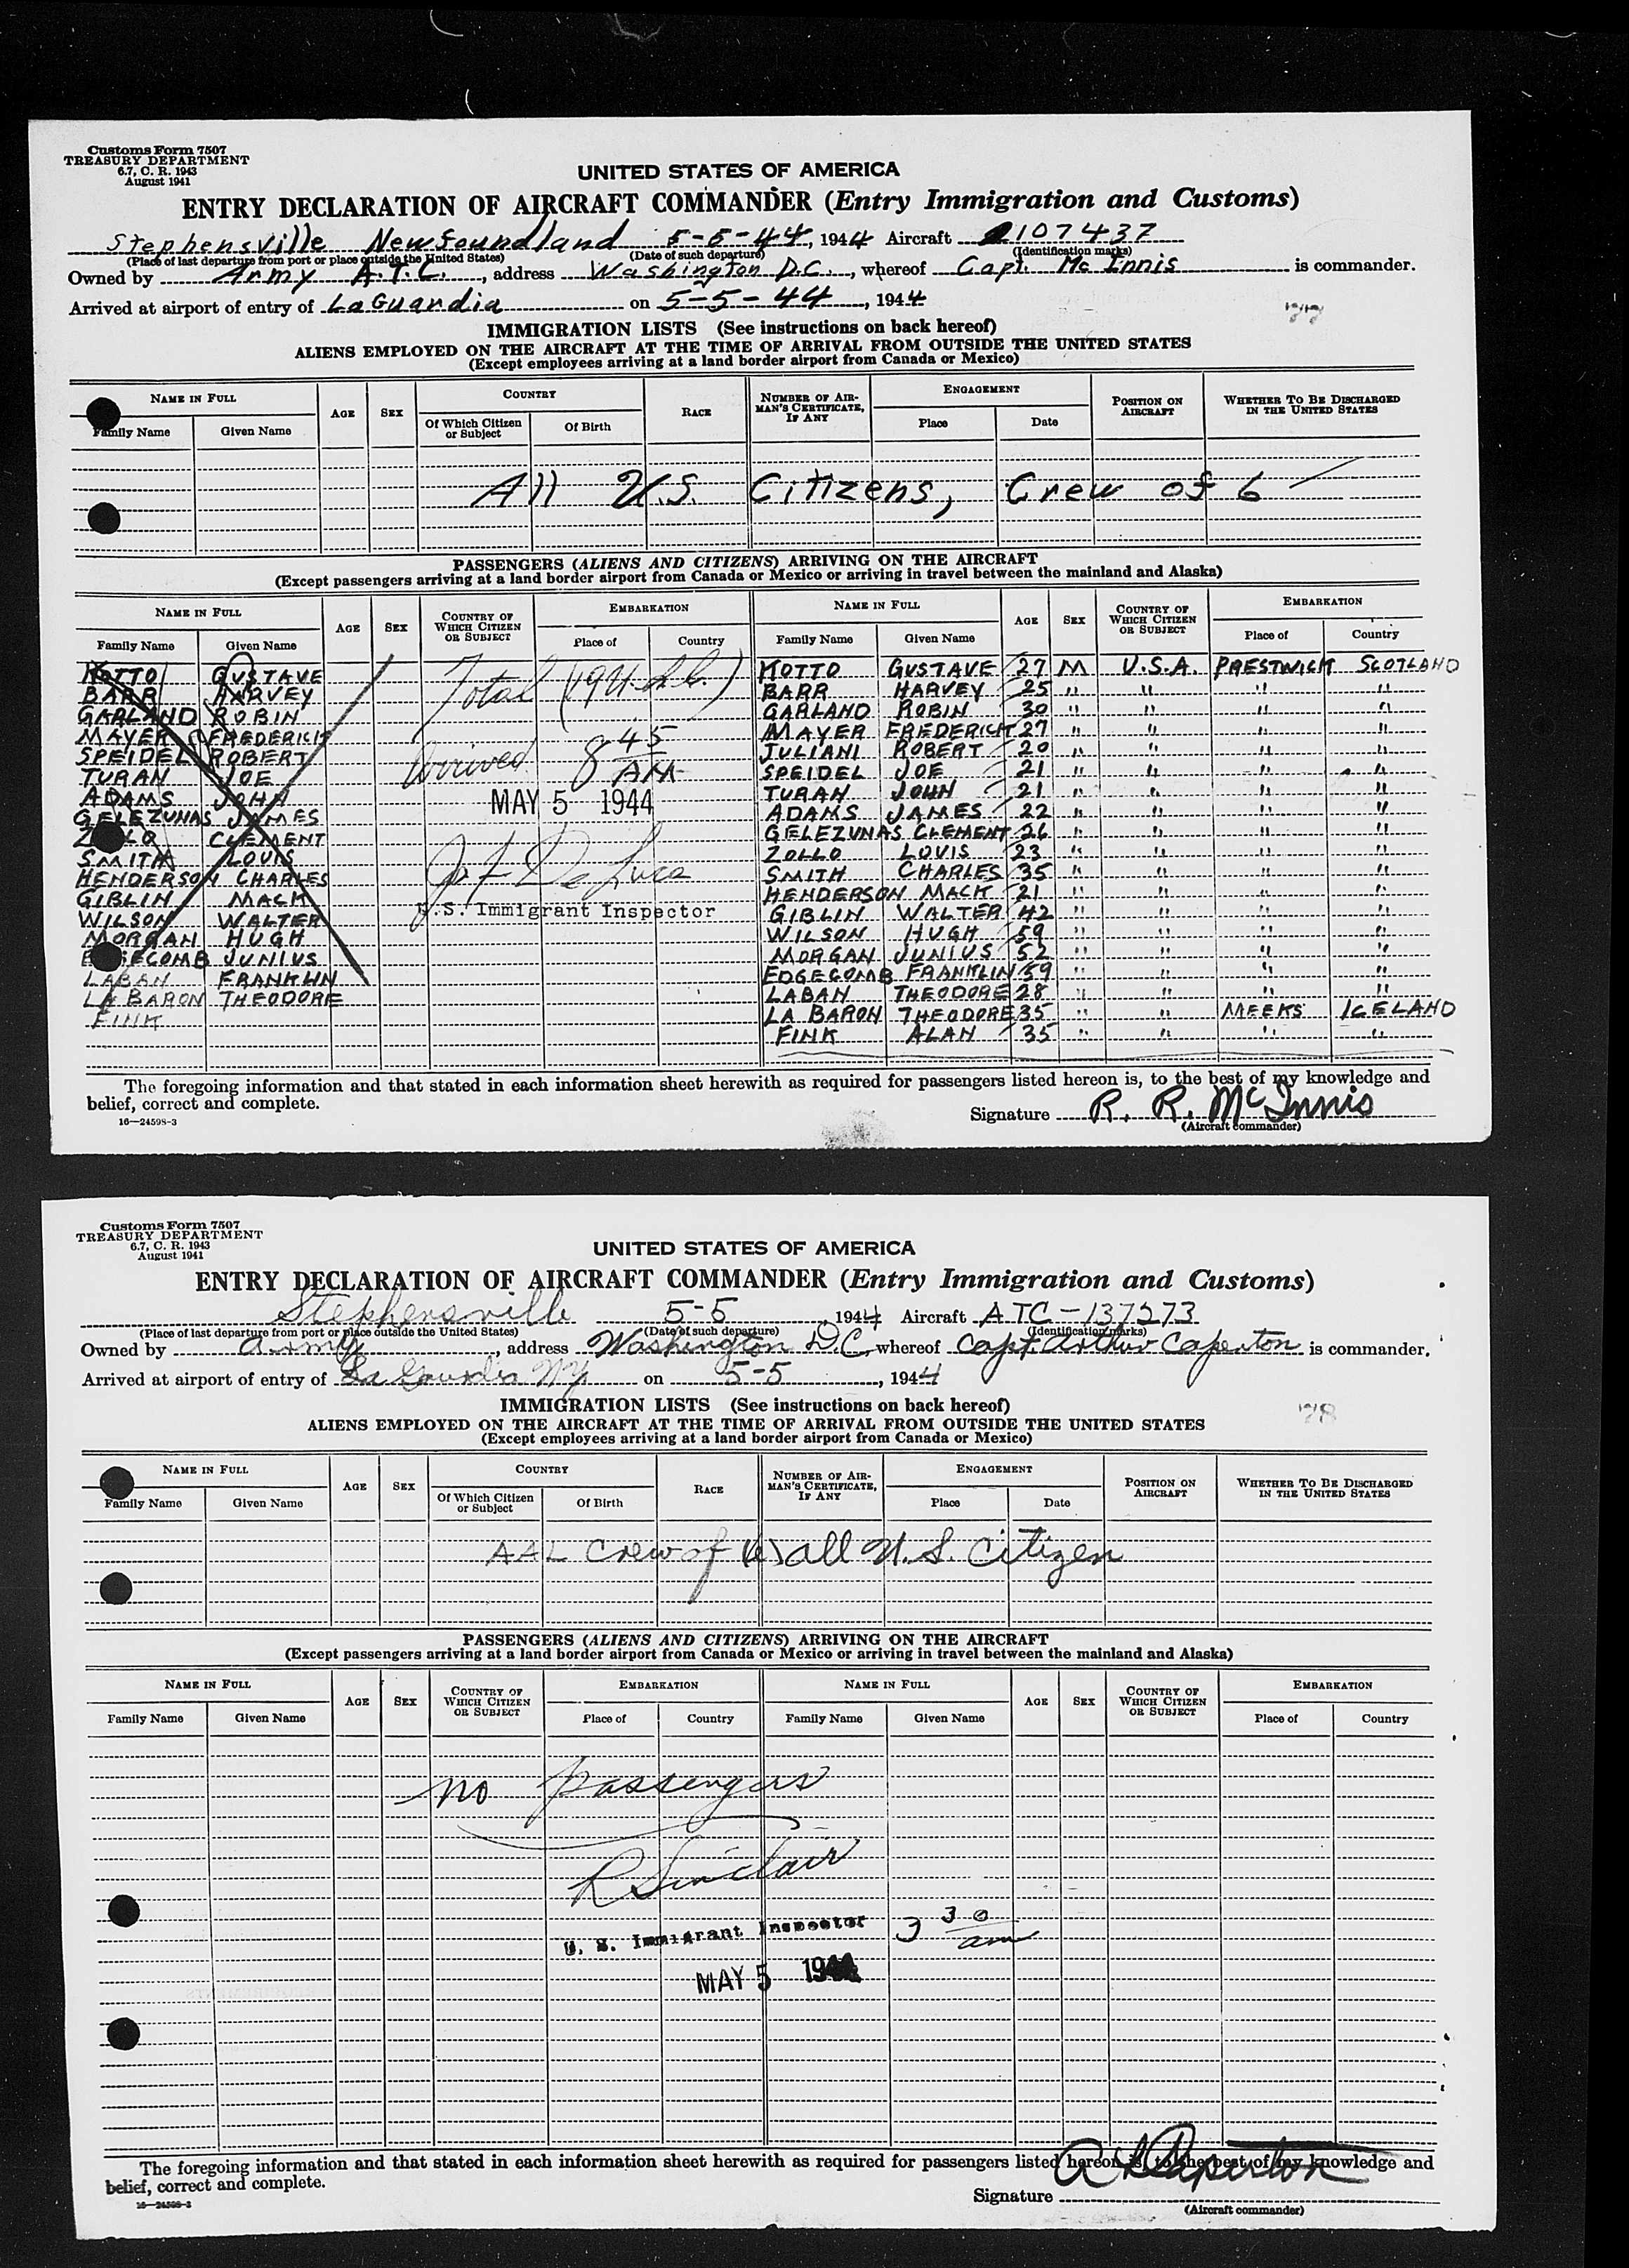 Customs Form 7507
TREASURY DEPARTMENT
6.7, C. R. 1943
August 1941
UNITED STATES OF AMERICA
ENTRY DECLARATION OF AIRCRAFT COMMANDER (Entry Immigration and Customs)
Stephensville Newfoundland 5-5-44, 1944 Aircraft 107437
(Place of last departure from port or place outside the United States) (Date of such departure) (Identification marks)
Owned by Army A.T.C., address Washington D.C., whereof Capt. Mc Innis is commander.
Arrived at airport of entry of LaGuardia on 5-5-44, 1944
77
IMMIGRATION LISTS (See instructions on back hereof)
ALIENS EMPLOYED ON THE AIRCRAFT AT THE TIME OF ARRIVAL FROM OUTSIDE THE UNITED STATES
(Except employees arriving at a land border airport from Canada or Mexico)
NAME IN FULL AGE SEX COUNTRY RACE NUMBER OF AIRMAN'S CERTIFICATE, IF ANY ENGAGEMENT POSITION ON AIRCRAFT WHETHER TO BE DISCHARGED IN THE UNITED STATES
Family Name Given Name Of Which Citizen or Subject Of Birth Place Date
All U.S. Citizens, Crew of 6
PASSENGERS (ALIENS AND CITIZENS) ARRIVING ON THE AIRCRAFT
(Except passengers arriving at a land border airport from Canada or Mexico or arriving in travel between the mainland and Alaska)
NAME IN FULL AGE SEX COUNTRY OF WHICH CITIZEN OR SUBJECT EMBARKATION NAME IN FULL AGE SEX COUNTRY OF WHICH CITIZEN OR SUBJECT EMBARKATION
Family Name Given Name Place of Country Family Name Given Name Place of Country
KOTTO GUSTAVE
BARR HARVEY
GARLAND ROBIN
MAYER FREDERICK
SPEIDEL ROBERT
TURAN JOE
ADAMS JOHN
GELEZUNAS JAMES
ZOLLO CLEMENT
SMITH LOUIS
HENDERSON CHARLES
GIBLIN MACK
WILSON WALTER
MORGAN HUGH
EDGECOMB JUNIUS
LABAN FRANKLIN
LA BARON THEODORE
FINK
Total (19 U.S.C.)
Arrived 8 45 AM
MAY 5 1944
Jos F De Luca
U.S. Immigrant Inspector
KOTTO GUSTAVE 27 M U.S.A. PRESTWICK SCOTLAND
BARR HARVEY 25 " " " "
GARLAND ROBIN 30 " " " "
MAYER FREDERICK 27 " " " "
JULIANI ROBERT 20 " " " "
SPEIDEL JOE 21 " " " "
TURAN JOHN 21 " " " "
ADAMS JAMES 22 " " " "
GELEZUNAS CLEMENT 26 " " " "
ZOLLO LOUIS 23 " " " "
SMITH CHARLES 35 " " " "
HENDERSON MACK 21 " " " "
GIBLIN WALTER 42 " " " "
WILSON HUGH 59 " " " "
MORGAN JUNIUS 52 " " " "
EDGECOMB FRANKLIN 59 " " " "
LABAN THEODORE 28 " " " "
LA BARON THEODORE 35 " " MEEKS ICELAND
FINK ALAN 35 " " " "
The foregoing information and that stated in each information sheet herewith as required for passengers listed hereon is, to the best of my knowledge and
belief, correct and complete.
16—24598-3
Signature R. R. McInnis
(Aircraft commander)
Customs Form 7507
TREASURY DEPARTMENT
6.7, C. R. 1943
August 1941
UNITED STATES OF AMERICA
ENTRY DECLARATION OF AIRCRAFT COMMANDER (Entry Immigration and Customs)
Stephensville 5-5, 1944 Aircraft ATC-137273
(Place of last departure from port or place outside the United States) (Date of such departure) (Identification marks)
Owned by Army, address Washington DC, whereof Capt. Arthur Caperton is commander.
Arrived at airport of entry of La Guardia NY on 5-5, 1944
78
IMMIGRATION LISTS (See instructions on back hereof)
ALIENS EMPLOYED ON THE AIRCRAFT AT THE TIME OF ARRIVAL FROM OUTSIDE THE UNITED STATES
(Except employees arriving at a land border airport from Canada or Mexico)
NAME IN FULL AGE SEX COUNTRY RACE NUMBER OF AIRMAN'S CERTIFICATE, IF ANY ENGAGEMENT POSITION ON AIRCRAFT WHETHER TO BE DISCHARGED IN THE UNITED STATES
Family Name Given Name Of Which Citizen or Subject Of Birth Place Date
AAL Crew of (6) all U.S. Citizen
PASSENGERS (ALIENS AND CITIZENS) ARRIVING ON THE AIRCRAFT
(Except passengers arriving at a land border airport from Canada or Mexico or arriving in travel between the mainland and Alaska)
NAME IN FULL AGE SEX COUNTRY OF WHICH CITIZEN OR SUBJECT EMBARKATION NAME IN FULL AGE SEX COUNTRY OF WHICH CITIZEN OR SUBJECT EMBARKATION
Family Name Given Name Place of Country Family Name Given Name Place of Country
no passengers
R Sinclair
U. S. Immigrant Inspector 3 30 am
MAY 5 1944
The foregoing information and that stated in each information sheet herewith as required for passengers listed hereon is, to the best of my knowledge and
belief, correct and complete.
16—24598-3
Signature A L Caperton
(Aircraft commander)